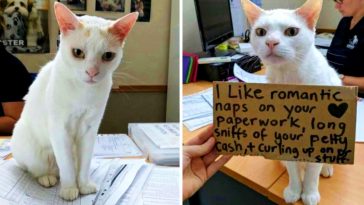 I Like romantic
naps on your
paperwork, long
sniffs of your petty
cash, + curling up on
... stuff